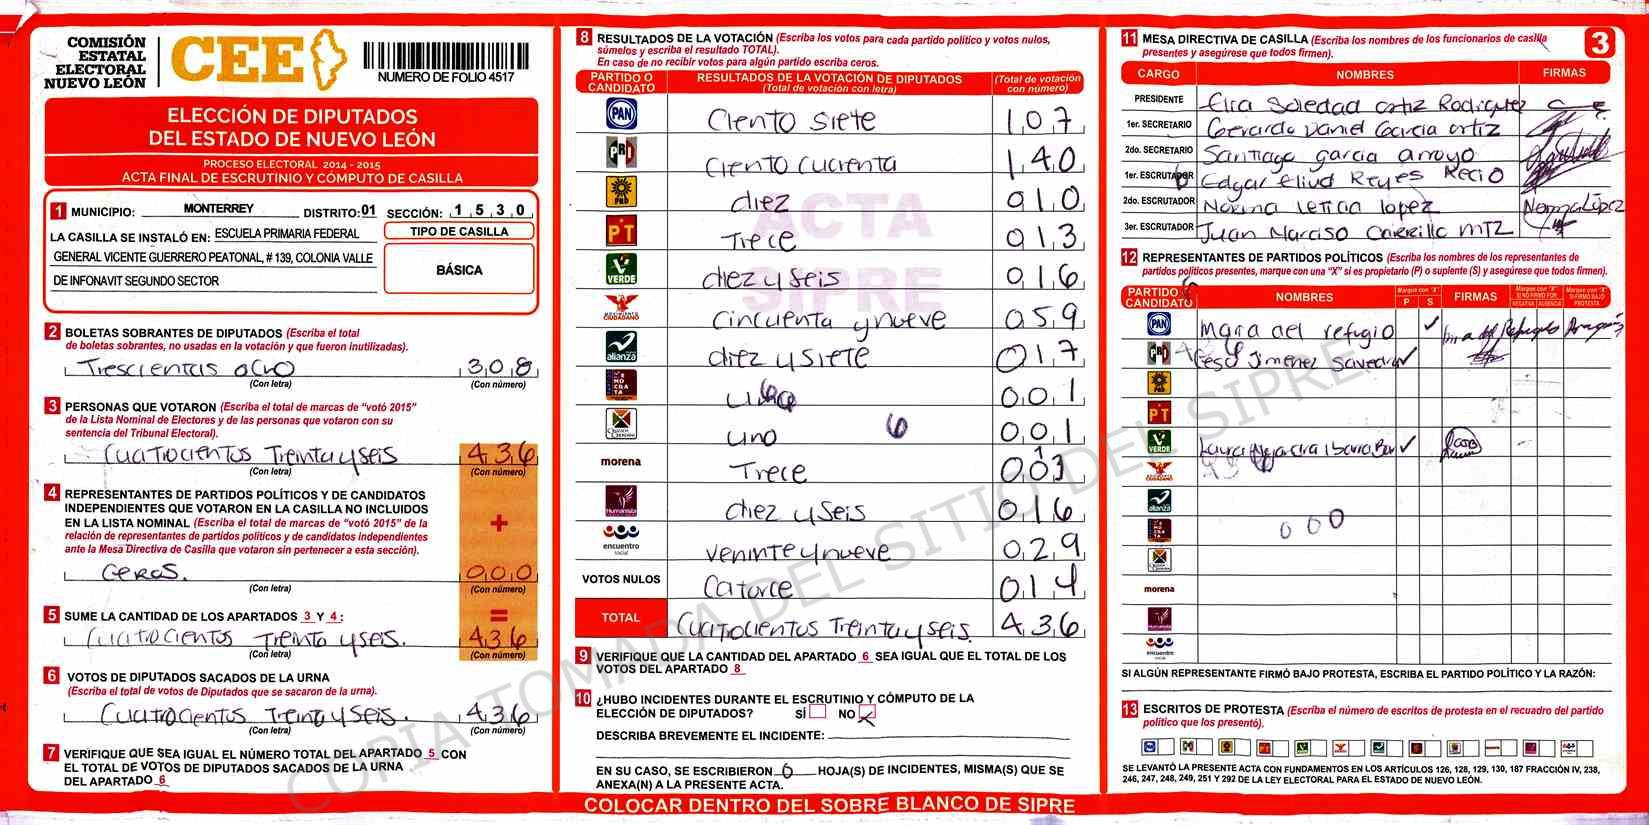 COMISIÓN
ESTATAL
ELECTORAL
NUEVO LEÓN
CEE
NUMERO DE FOLIO 4517
ELECCIÓN DE DIPUTADOS
DEL ESTADO DE NUEVO LEÓN
PROCESO ELECTORAL 2014 - 2015
ACTA FINAL DE ESCRUTINIO Y CÓMPUTO DE CASILLA
1 MUNICIPIO: MONTERREY DISTRITO: 01 SECCIÓN: 1 5 3 0
LA CASILLA SE INSTALÓ EN: ESCUELA PRIMARIA FEDERAL
GENERAL VICENTE GUERRERO PEATONAL, # 139, COLONIA VALLE
DE INFONAVIT SEGUNDO SECTOR
TIPO DE CASILLA
BÁSICA
2 BOLETAS SOBRANTES DE DIPUTADOS (Escriba el total
de boletas sobrantes, no usadas en la votación y que fueron inutilizadas).
Trescientas ocho 3 0 8
(Con letra) (Con número)
3 PERSONAS QUE VOTARON (Escriba el total de marcas de "votó 2015"
de la Lista Nominal de Electores y de las personas que votaron con su
sentencia del Tribunal Electoral).
Cuatrocientos Treinta y seis 4 3 6
(Con letra) (Con número)
4 REPRESENTANTES DE PARTIDOS POLÍTICOS Y DE CANDIDATOS
INDEPENDIENTES QUE VOTARON EN LA CASILLA NO INCLUIDOS
EN LA LISTA NOMINAL (Escriba el total de marcas de "votó 2015" de la
relación de representantes de partidos políticos y de candidatos independientes
ante la Mesa Directiva de Casilla que votaron sin pertenecer a esta sección).
+
Ceros. 0 0 0
(Con letra) (Con número)
5 SUME LA CANTIDAD DE LOS APARTADOS 3 Y 4: =
Cuatrocientos Treinta y seis. 4 3 6
(Con letra) (Con número)
6 VOTOS DE DIPUTADOS SACADOS DE LA URNA
(Escriba el total de votos de Diputados que se sacaron de la urna).
Cuatrocientos Treinta y seis. 4 3 6
(Con letra) (Con número)
7 VERIFIQUE QUE SEA IGUAL EL NÚMERO TOTAL DEL APARTADO 5 CON
EL TOTAL DE VOTOS DE DIPUTADOS SACADOS DE LA URNA
DEL APARTADO 6
8 RESULTADOS DE LA VOTACIÓN (Escriba los votos para cada partido político y votos nulos,
súmelos y escriba el resultado TOTAL).
En caso de no recibir votos para algún partido escriba ceros.
PARTIDO O CANDIDATO RESULTADOS DE LA VOTACIÓN DE DIPUTADOS (Total de votación con letra) (Total de votación con número)
PAN Ciento siete 1 0 7
PRI Ciento cuarenta 1 4 0
PRD diez 0 1 0
PT Trece 0 1 3
VERDE diez y seis 0 1 6
MOVIMIENTO CIUDADANO Cincuenta y nueve 0 5 9
alianza diez y siete 0 1 7
DEMOCRATA uno 0 0 1
CRUZADA CIUDADANA uno 0 0 1
morena Trece 0 1 3
Humanista diez y seis 0 1 6
encuentro social veninte y nueve 0 2 9
VOTOS NULOS Catorce 0 1 4
TOTAL Cuatrocientos Treinta y seis. 4 3 6
ACTA
SIPRE
9 VERIFIQUE QUE LA CANTIDAD DEL APARTADO 6 SEA IGUAL QUE EL TOTAL DE LOS
VOTOS DEL APARTADO 8
10 ¿HUBO INCIDENTES DURANTE EL ESCRUTINIO Y CÓMPUTO DE LA
ELECCIÓN DE DIPUTADOS? SÍ NO X
DESCRIBA BREVEMENTE EL INCIDENTE:
EN SU CASO, SE ESCRIBIERON 0 HOJA(S) DE INCIDENTES, MISMA(S) QUE SE
ANEXA(N) A LA PRESENTE ACTA.
COLOCAR DENTRO DEL SOBRE BLANCO DE SIPRE
11 MESA DIRECTIVA DE CASILLA (Escriba los nombres de los funcionarios de casilla
presentes y asegúrese que todos firmen).
3
CARGO NOMBRES FIRMAS
PRESIDENTE Elra Soledad Ortiz Rodriguez
1er. SECRETARIO Gerardo Daniel Garcia Ortiz
2do. SECRETARIO Santiago garcia arroyo
1er. ESCRUTADOR Edgar Eliud Reyes Recio
2do. ESCRUTADOR Norma Leticia lopez Norma López
3er. ESCRUTADOR Juan Narciso Carrillo mtz
12 REPRESENTANTES DE PARTIDOS POLÍTICOS (Escriba los nombres de los representantes de
partidos políticos presentes, marque con una "X" si es propietario (P) o suplente (S) y asegúrese que todos firmen).
PARTIDO O CANDIDATO NOMBRES Marque con "X" P S FIRMAS Marque con "X" SI NO FIRMÓ POR NEGATIVA AUSENCIA Marque con "X" SI FIRMÓ BAJO PROTESTA
PAN Mara del refugio ✓
PRI Jimenez Savedra ✓
PRD
PT
VERDE Laura Alejandra Ibarra ✓
alianza
0 0 0
morena
encuentro social
SI ALGÚN REPRESENTANTE FIRMÓ BAJO PROTESTA, ESCRIBA EL PARTIDO POLÍTICO Y LA RAZÓN:
13 ESCRITOS DE PROTESTA (Escriba el número de escritos de protesta en el recuadro del partido
político que los presentó).
SE LEVANTÓ LA PRESENTE ACTA CON FUNDAMENTOS EN LOS ARTÍCULOS 126, 128, 129, 130, 187 FRACCIÓN IV, 238,
246, 247, 248, 249, 251 Y 292 DE LA LEY ELECTORAL PARA EL ESTADO DE NUEVO LEÓN.
COPIA TOMADA DEL SITIO DEL SIPRE